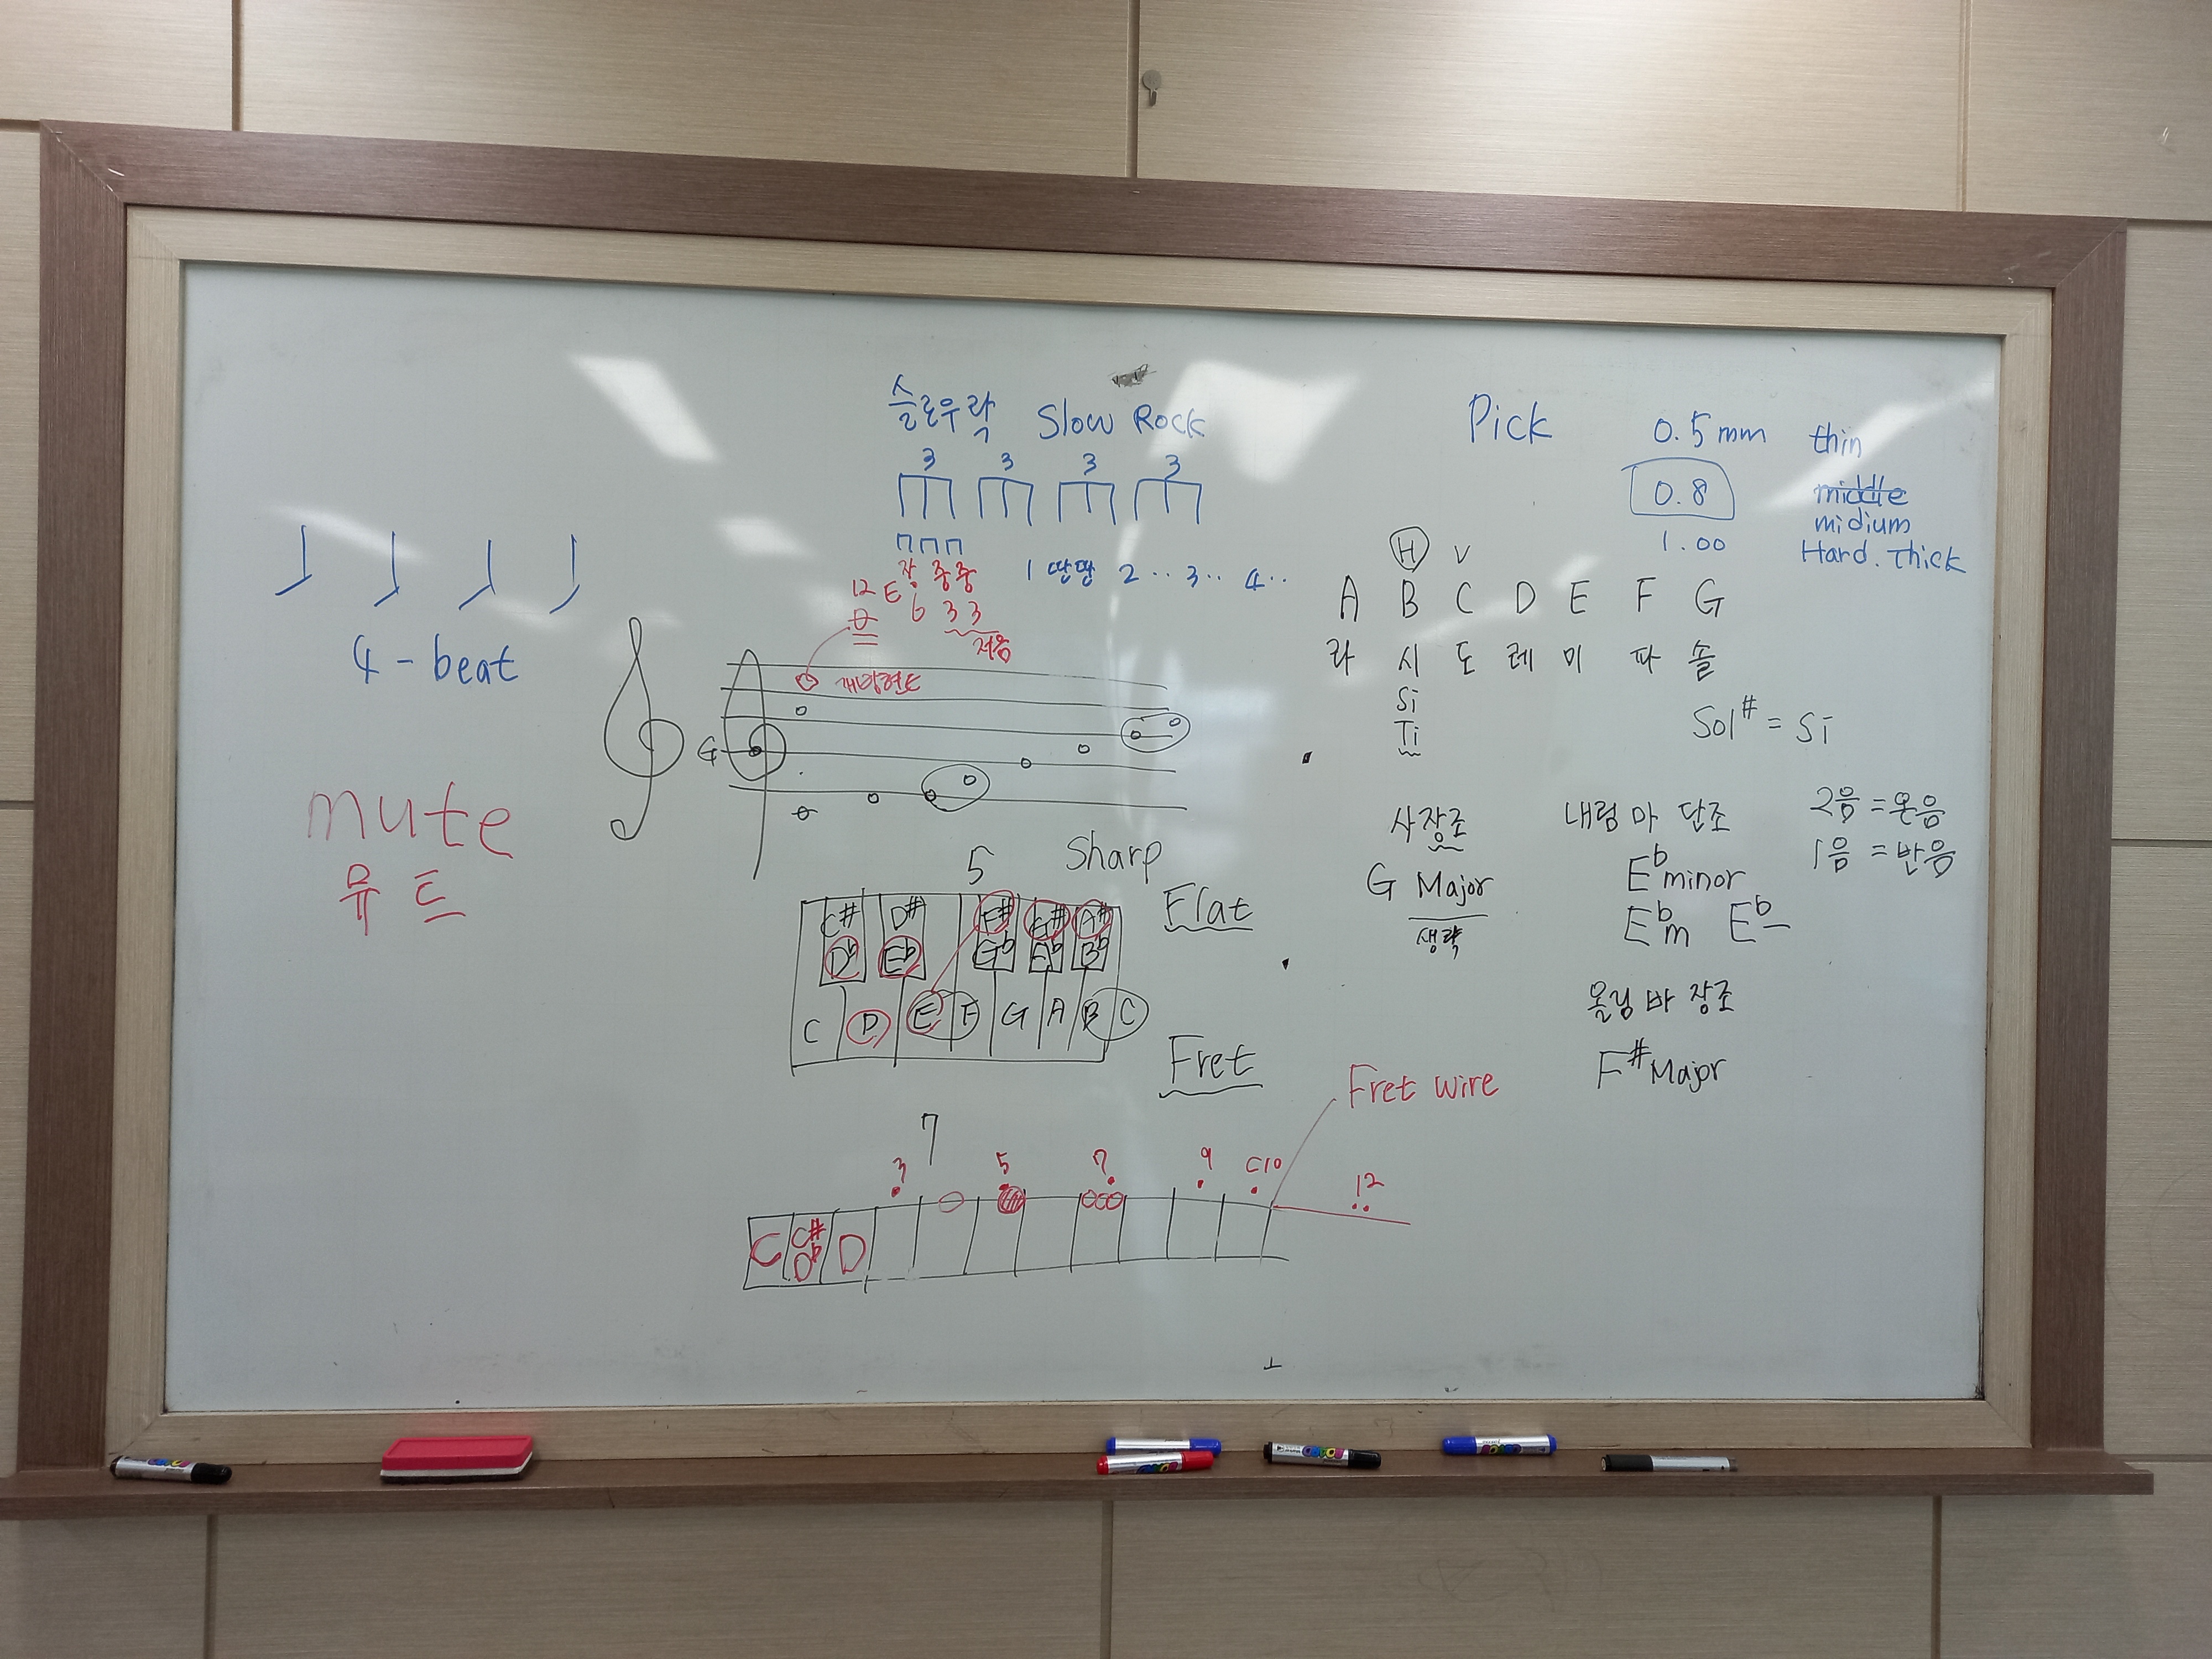 슬로우락 Slow Rock
3 3 3 3
장 중중
12 E 6 3 3
저음
1 딴딴 2 ‥ 3 ‥ 4 ‥
4 - beat
mute
뮤트
G
개방현
Pick 0.5 mm thin
0.8 middle
midium
1.00 Hard. Thick
H v
A B C D E F G
라 시 도 레 미 파 솔
Si
Ti
Sol# = Si
사장조
G Major
생략
내림 마 단조
E♭ minor
E♭m E♭–
올림 바 장조
F# Major
2음 = 온음
1음 = 반음
5 Sharp
Flat
C# D# F# G# A#
D♭ E♭ G♭ A♭ B♭
C D E F G A B C
Fret
Fret wire
7
3 5 7 9 C10 12
C C# D
D♭